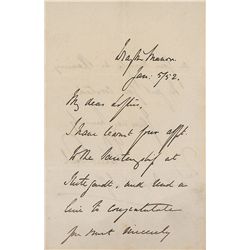 Drayton Manor.
Jan: 5/52.
My dear
I have learnt your appt.
to the Secretaryship at
Stuttgardt, and send a
line to congratulate
you most sincerely